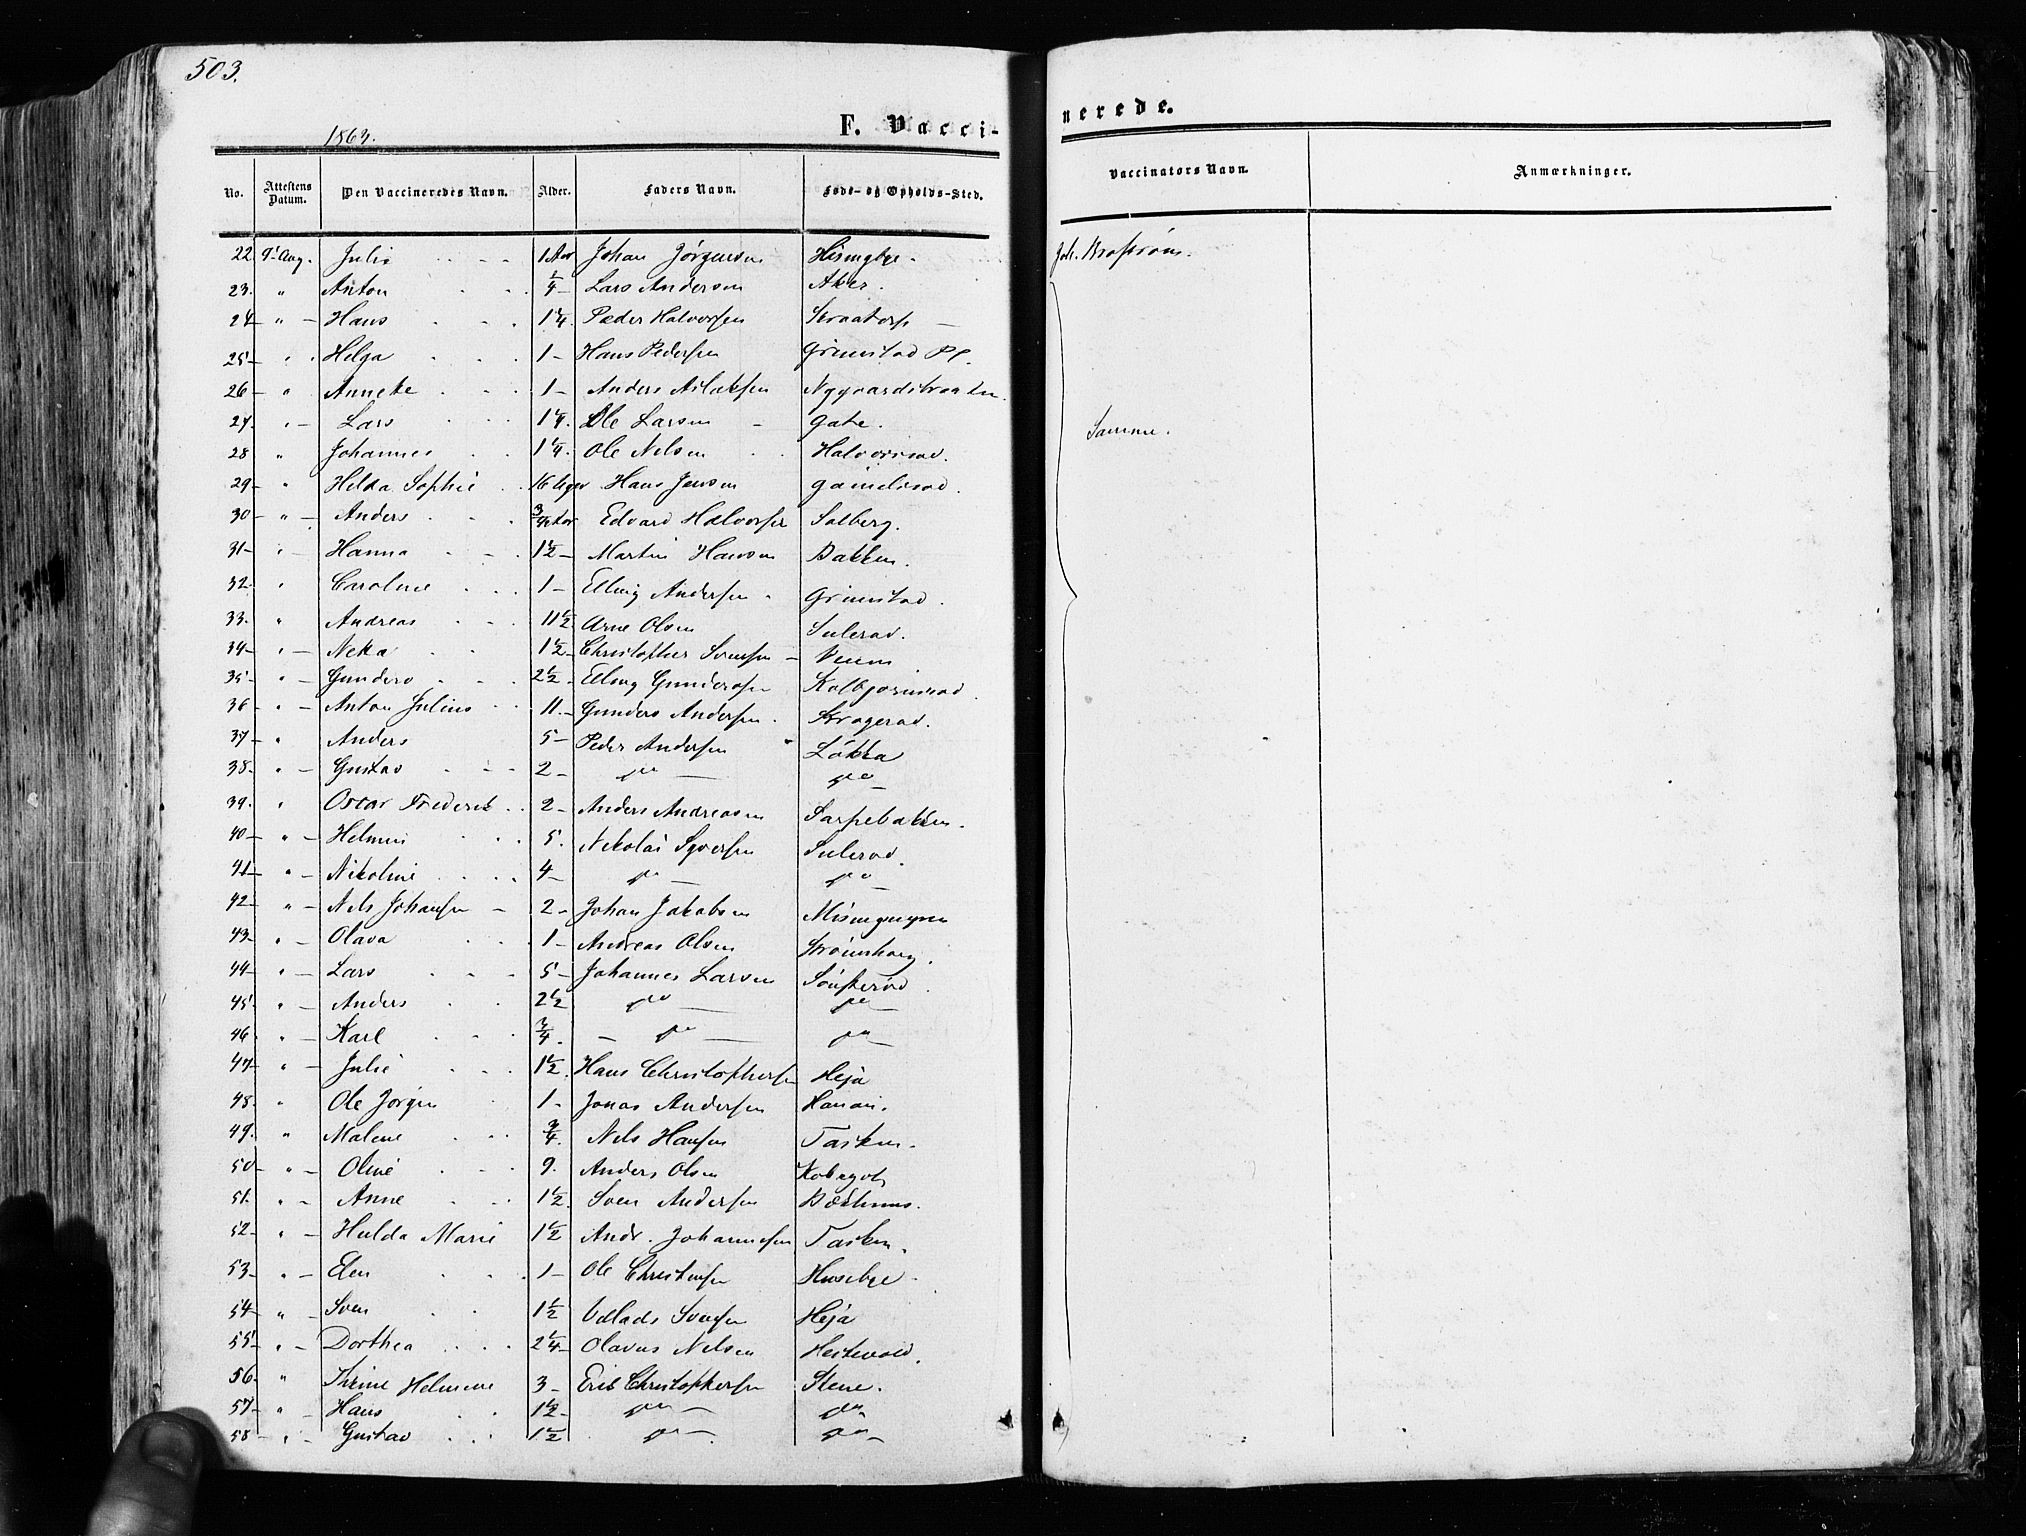 503.
1863.
F. Vacci-
nerede.
No. Attestens Datum. Den Vaccineredes Navn. Alder. Faders Navn. Føde- og Opholds-Sted.
Vaccinators Navn. Anmærkninger.
22 9' Aug. Julie 1 Aar Johan Jørgensen Hisingbye. Joh. Brostrøm.
23. " Anton ¼ Lars Andersen Aker.
24 " Hans 1¼. Peder Halvorsen
25 " Helga 1 Hans Pedersen Grimstad Pl.
26 " Anneke 1 Anders Aslaksen Nygaardsbraaten
27 " Lars 1¼. Ole Larsen Gate. Samme.
28 " Johannes 1¼. Ole Nelsen Halvorsrød.
29 " Helda Sophie 16 Uger Hans Jensen
30 " Anders ¾ Aar Edvard Halvorsen Solberg.
31 " Hanna 1½ Martin Hansen Bakken.
32. " Caroline 1 Elling Andersen Grimstad.
33. " Andreas 11½ Arne Olsen Sulerød.
34 " Neka 1½ Christopher Svensen Veum
35 " Gundero 2½ Elling Gundersen Kolbjørnsrød.
36 " Anton Julius 11. Gunders Andersen. Krogerød.
37 " Anders 5 Peder Andersen Løkka
38. " Gustav 2 do do
39. " Oscar Frederik 2 Anders Andreasen Sarpebakken.
40 " Helmin 5. Nikolai Syversen Sulerød.
41 " Nikoline 4 do do
42 " Nils Johansen 2 Johan Jakobsen Misingmyren
43 " Olava 1 Andreas Olsen Strømshoug.
44 " Lars 5 Johannes Larsen Sønsterød
45 " Anders 2½ do do
46 " Karl ¾. do do
47 " Julie 1½. Hans Christophersen Heja
48. " Ole Jørgen 1 Jonas Andersen
49. " Malene ¾. Nils Hansen Tasken.
50 " Oline 9. Anders Olsen
51. " Anne 1½. Sven Andersen
52 " Hulda Marie 1½ Andr. Johannesen Tasken.
53 " Elen 1 Ole Christensen Husebye
54 " Sven 1½ Svensen Heja
55 " Dorthea 2¼ Olavus Nelsen Hestevold.
56 " Thrine Helmine 3 Erik Christophersen Stene.
57 " Hans 1½ do do
58 " Gustav 1½ do do